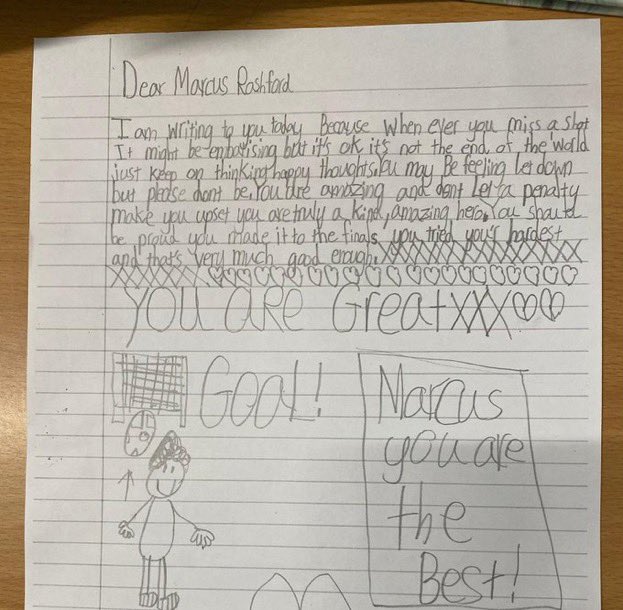 Dear Marcus Rashford
I am writing to you today Because when ever you miss a shot
It might be embarising but it's ok it's not the end of the world
just keep on thinking happy thoughts. You may Be feeling let down
but please dont be. You are amazing and dont let a penalty
make you upset you are truly a kind, amazing hero. You should
be proud you made it to the finals, you tried your's hardest
and that's very much good enough. XXXXXXXXXXXXX
XXXXXXX ♡♡♡♡♡♡♡♡♡♡♡♡♡♡♡♡♡♡♡♡
you are GreatXXX♡♡
GOAL!
Marcus
you are
the
Best!